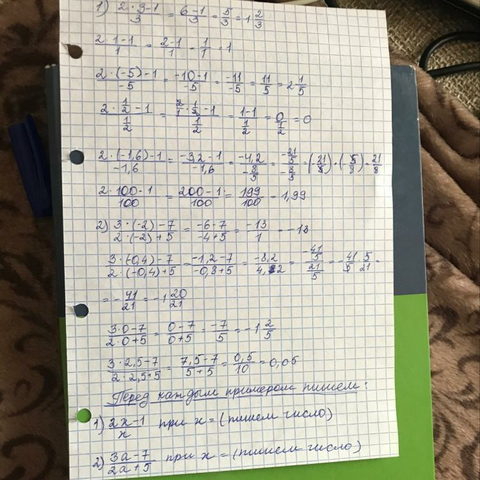 1) 2·3-1/3 = 6-1/3 = 5/3 = 1 2/3
2·1-1/1 = 2-1/1 = 1/1 = 1
2·(-5)-1/-5 = -10-1/-5 = -11/-5 = 11/5 = 2 1/5
2·1/2-1/1/2 = 2/1·1/2-1/1/2 = 1-1/1/2 = 0/1/2 = 0
2·(-1,6)-1/-1,6 = -3,2-1/-1,6 = -4,2/-8/5 = -21/5/-8/5 = (-21/5)·(-5/8) = 21/8
2·100-1/100 = 200-1/100 = 199/100 = 1,99
2) 3·(-2)-7/2·(-2)+5 = -6-7/-4+5 = -13/1 = -13
3·(-0,4)-7/2·(-0,4)+5 = -1,2-7/-0,8+5 = -8,2/4,2 = -41/5/21/5 = -41/5·5/21 =
= -41/21 = -1 20/21
3·0-7/2·0+5 = 0-7/0+5 = -7/5 = -1 2/5
3·2,5-7/2·2,5+5 = 7,5-7/5+5 = 0,5/10 = 0,05
Перед каждым примером пишем:
1) 2x-1/x при x = (пишем число)
2) 3a-7/2a+5 при x = (пишем число)